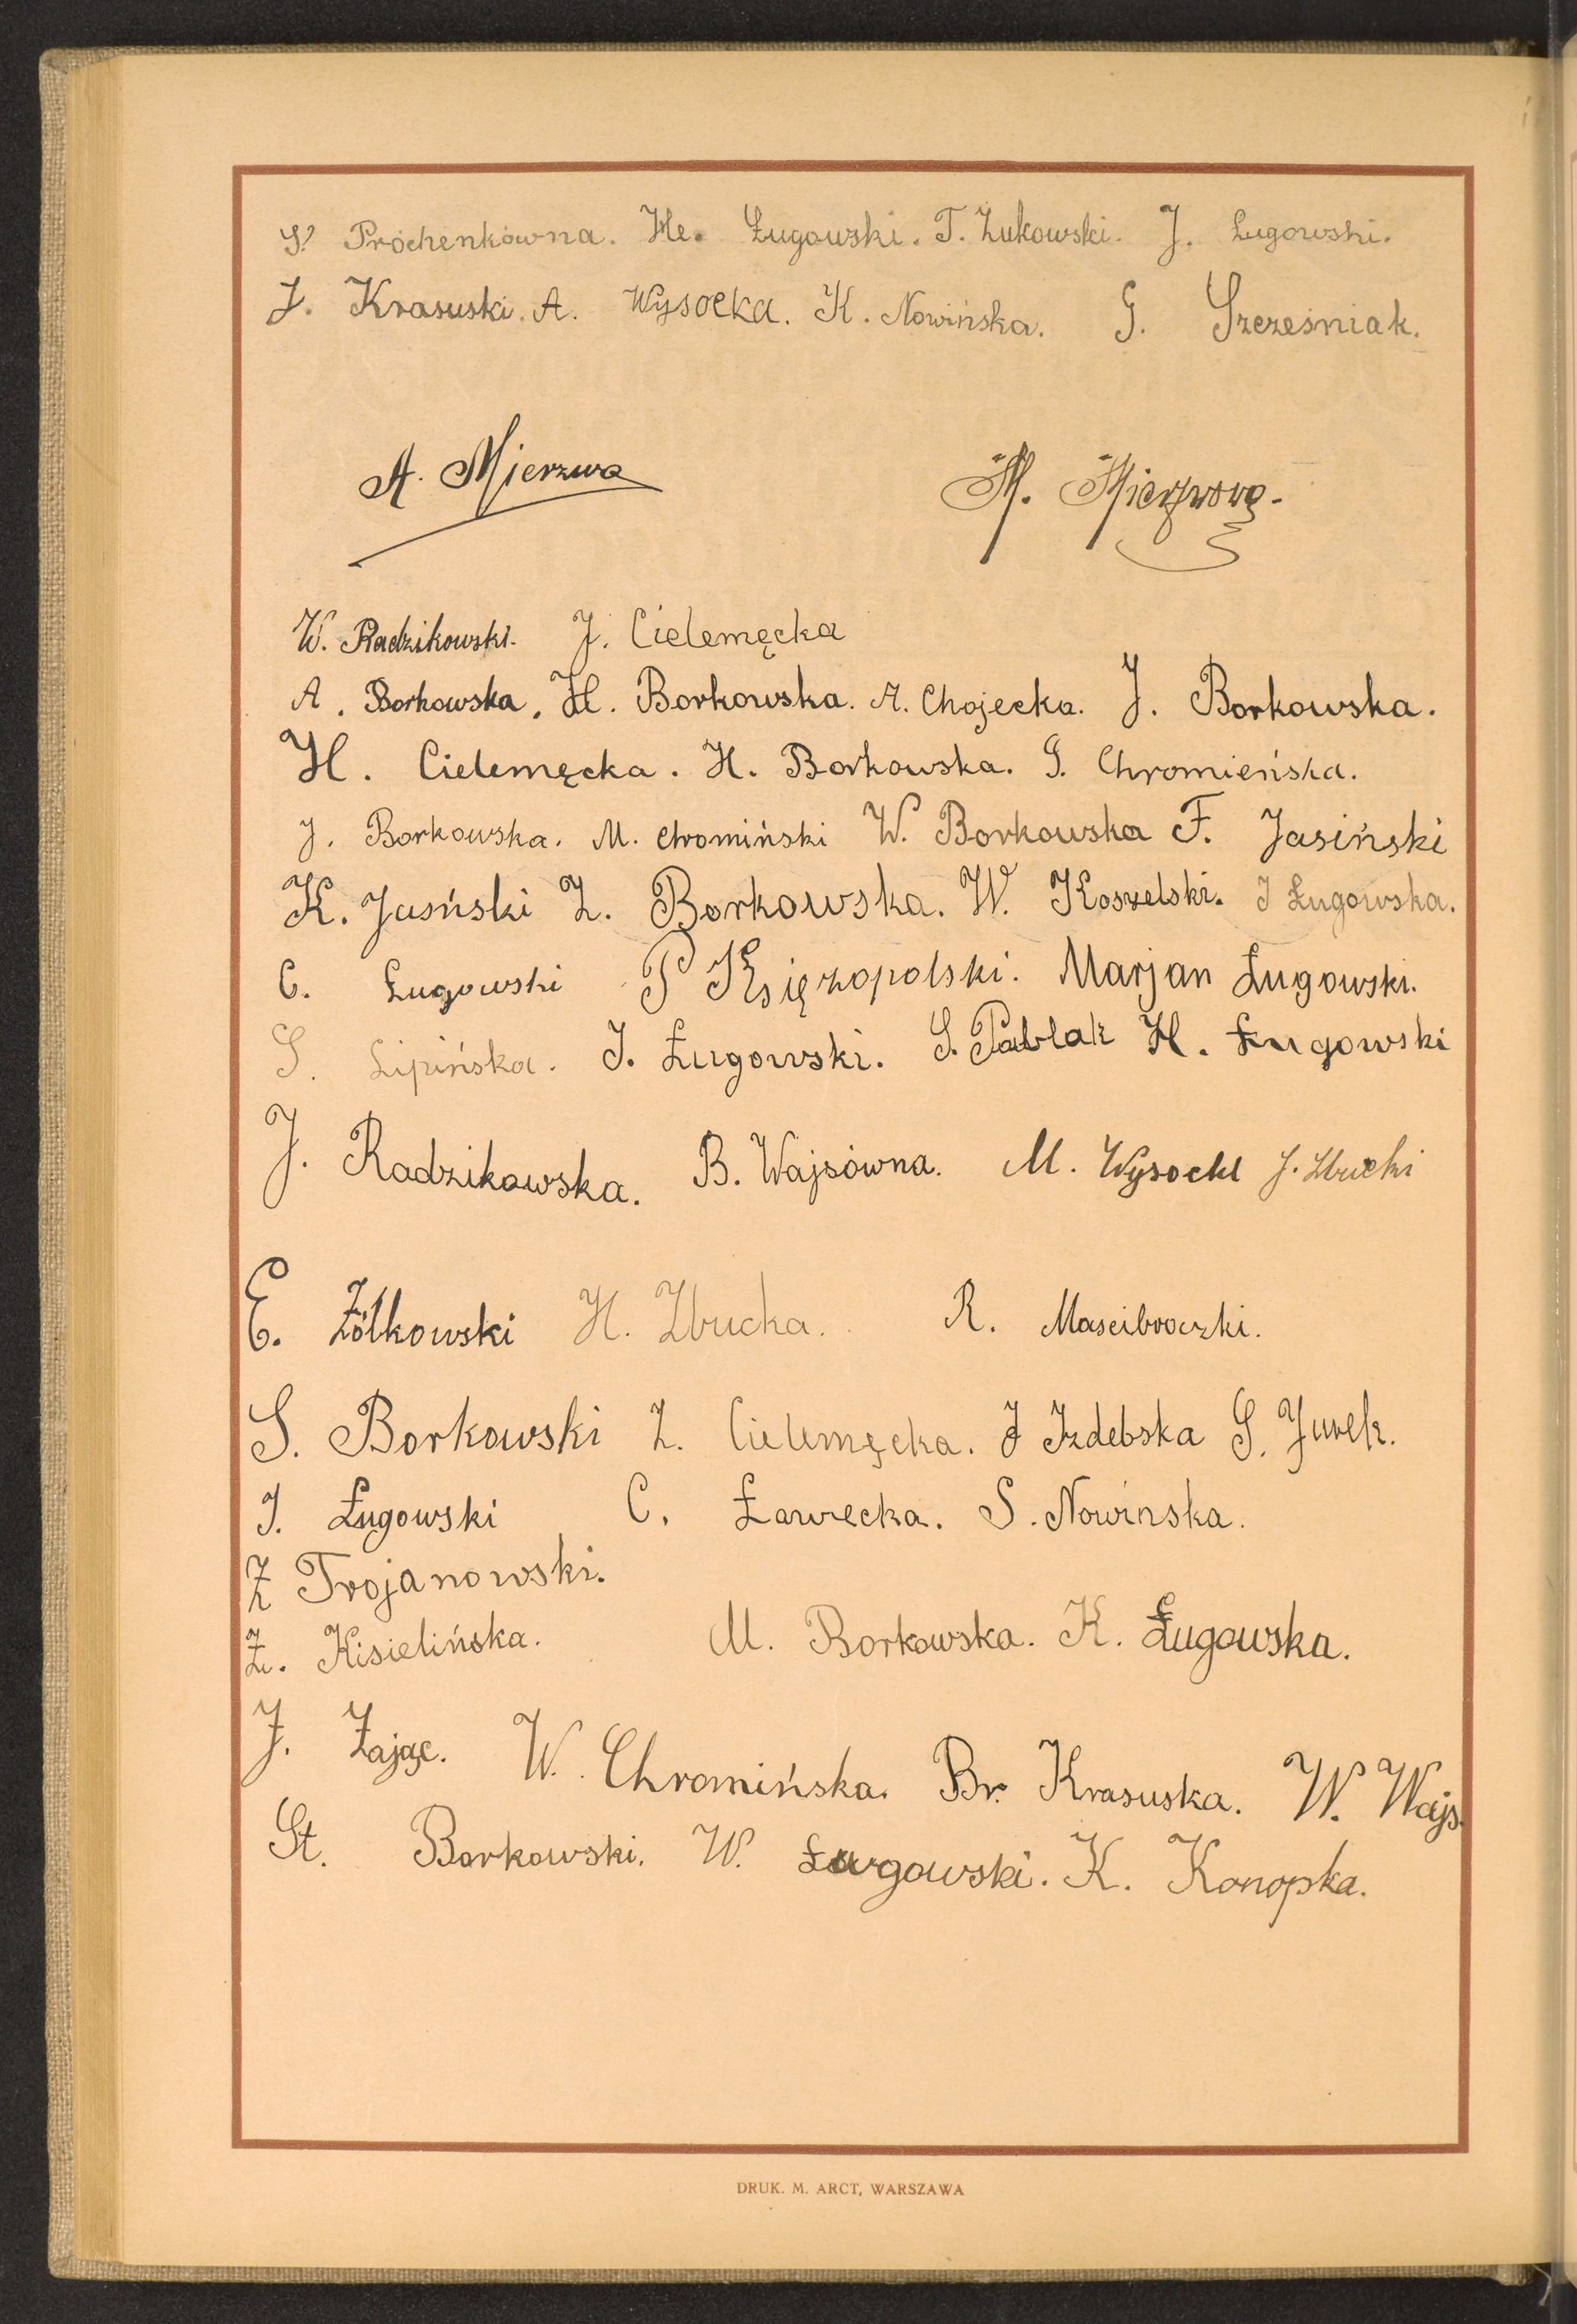 S. Próchenkówna. He. Ługowski. T. Żukowski. J. Ługowski.
J. Krasuski. A. Wysocka. K. Nowińska. G. Szcześniak.
A. Mierzwa M. Mierzwowa.
W. Radzikowski. J. Cielemęcka
A. Borkowska. H. Borkowska. A. Chojecka. J. Borkowska.
H. Cielemęcka. H. Borkowska. G. Chromieńska.
J. Borkowska. M. Chromiński W. Borkowska F. Jasiński
K. Jasński Z. Borkowska. W. Koszelski. J Ługowska.
C. Ługowski P Księzopolski. Marjan Ługowski.
S. Lipińska. J. Ługowski. S. Pablak H. Ługowski
J. Radzikowska. B. Wajsówna. M. Wysocki J. Zbucki
E. Żółkowski H. Zbucka. R. Mascibroczki.
S. Borkowski Z. Cielemęcka. J Izdebska S. Jurek.
J. Ługowski C. Ławecka. S. Nowinska.
Z Trojanowski.
Z. Kisielińska. M. Borkowska. K. Ługowska.
J. Zając. W. Chromińska. Br. Krasuska. W. Wajs.
St. Borkowski. W. Ługowski. K. Konopka.
DRUK. M. ARCT, WARSZAWA